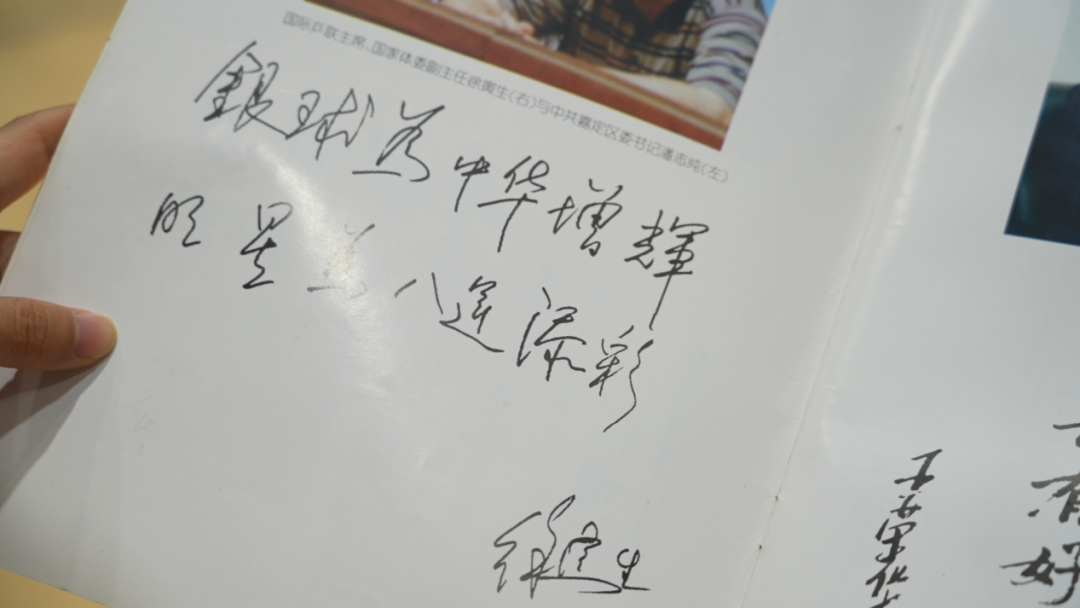 国际乒联主席、国家体委副主任徐寅生(右)与中共嘉定区委书记潘志纯(左)
銀球为中华增輝
明星为八运添彩
徐寅生
有
好